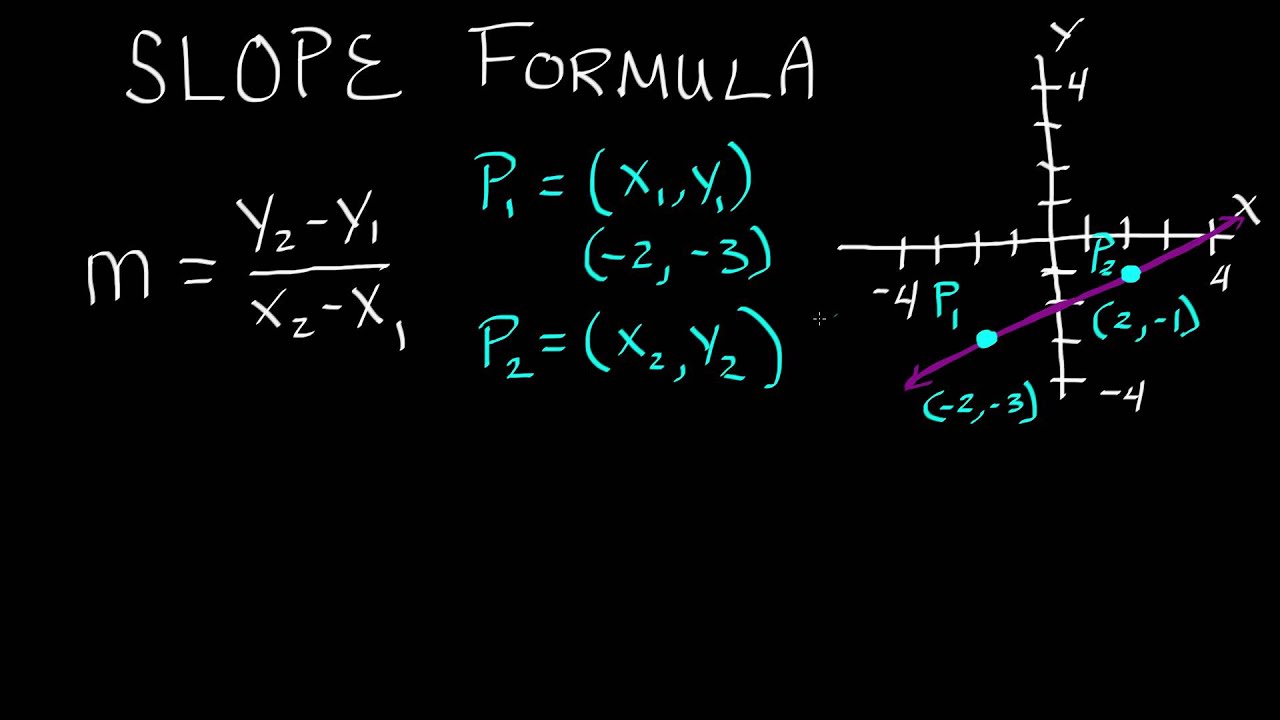 SLOPE FORMULA
m = (Y₂ - Y₁) / (X₂ - X₁)
P₁ = (X₁, Y₁)
(-2, -3)
P₂ = (X₂, Y₂)
Y
4
X
-4
4
P₂
(2, -1)
P₁
(-2, -3)
-4